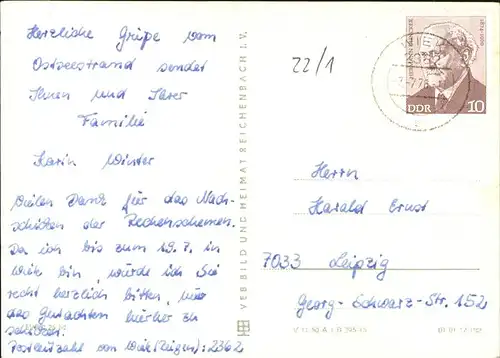 Herzliche Grüße vom
Ostseestrand sendet
Ihnen und Ihrer
Familie
Karin Winter
Vielen Dank für das Nach-
schicken der Rechenschemen.
Da ich bis zum 19.7. in
Wiek bin, würde ich Sie
recht herzlich bitten, mir
das Gutachten hierher zu
schicken.
Postleitzahl von Wiek (Rügen): 2362
VEB BILD UND HEIMAT REICHENBACH I. V.
22/1
DDR 10
Herrn
Harald Ernst
7033 Leipzig
Georg-Schwarz-Str. 152